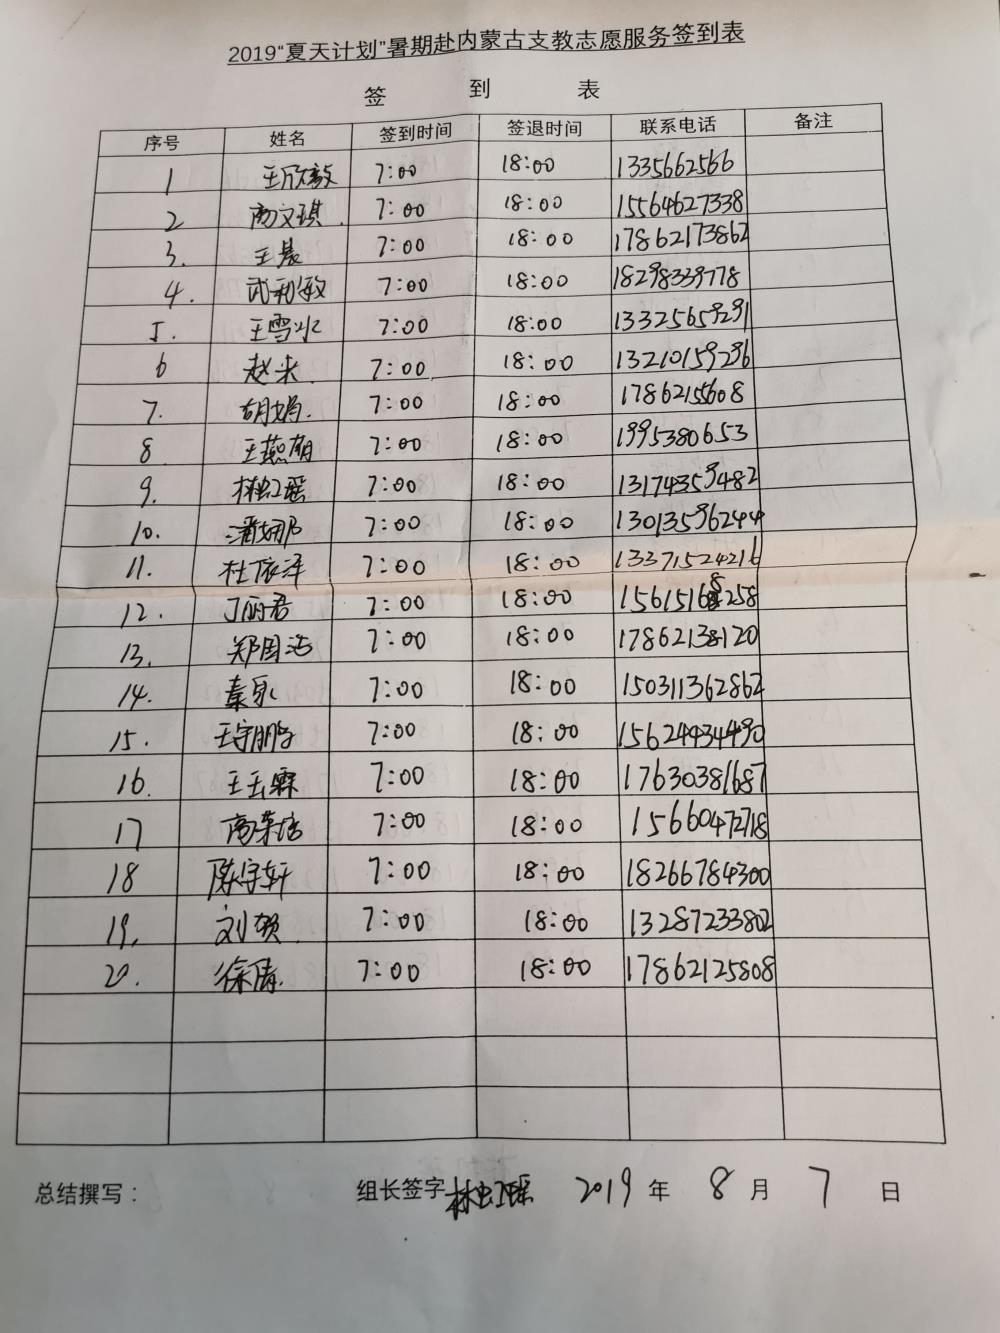 2019“夏天计划”暑期赴内蒙古支教志愿服务签到表
签 到 表
序号 姓名 签到时间 签退时间 联系电话 备注
1 王欣毅 7:00 18:00 1335662566
2 商文琪 7:00 18:00 15564627338
3. 王晨 7:00 18:00 17862173862
4. 武利敏 7:00 18:00 18298339778
5. 王雪冰 7:00 18:00 13325659291
6 赵米 7:00 18:00 13210159296
7. 胡娟 7:00 18:00 17862155608
8 王燕萌 7:00 18:00 1995380653
9. 林虹瑶 7:00 18:00 13174359482
10. 潘娜娜 7:00 18:00 13013596244
11. 杜依泽 7:00 18:00 13371524216
12. 丁丽君 7:00 18:00 15615168258
13. 郑国洁 7:00 18:00 17862138120
14. 秦泉 7:00 18:00 150311362862
15. 王宇鹏 7:00 18:00 15624934490
16. 王玉霖 7:00 18:00 17630381687
17 高荣洁 7:00 18:00 15660472718
18 陈宇轩 7:00 18:00 18266784300
19. 刘贺 7:00 18:00 13287233802
20. 徐倩 7:00 18:00 17862125808
总结撰写： 组长签字 林虹瑶 2019 年 8 月 7 日